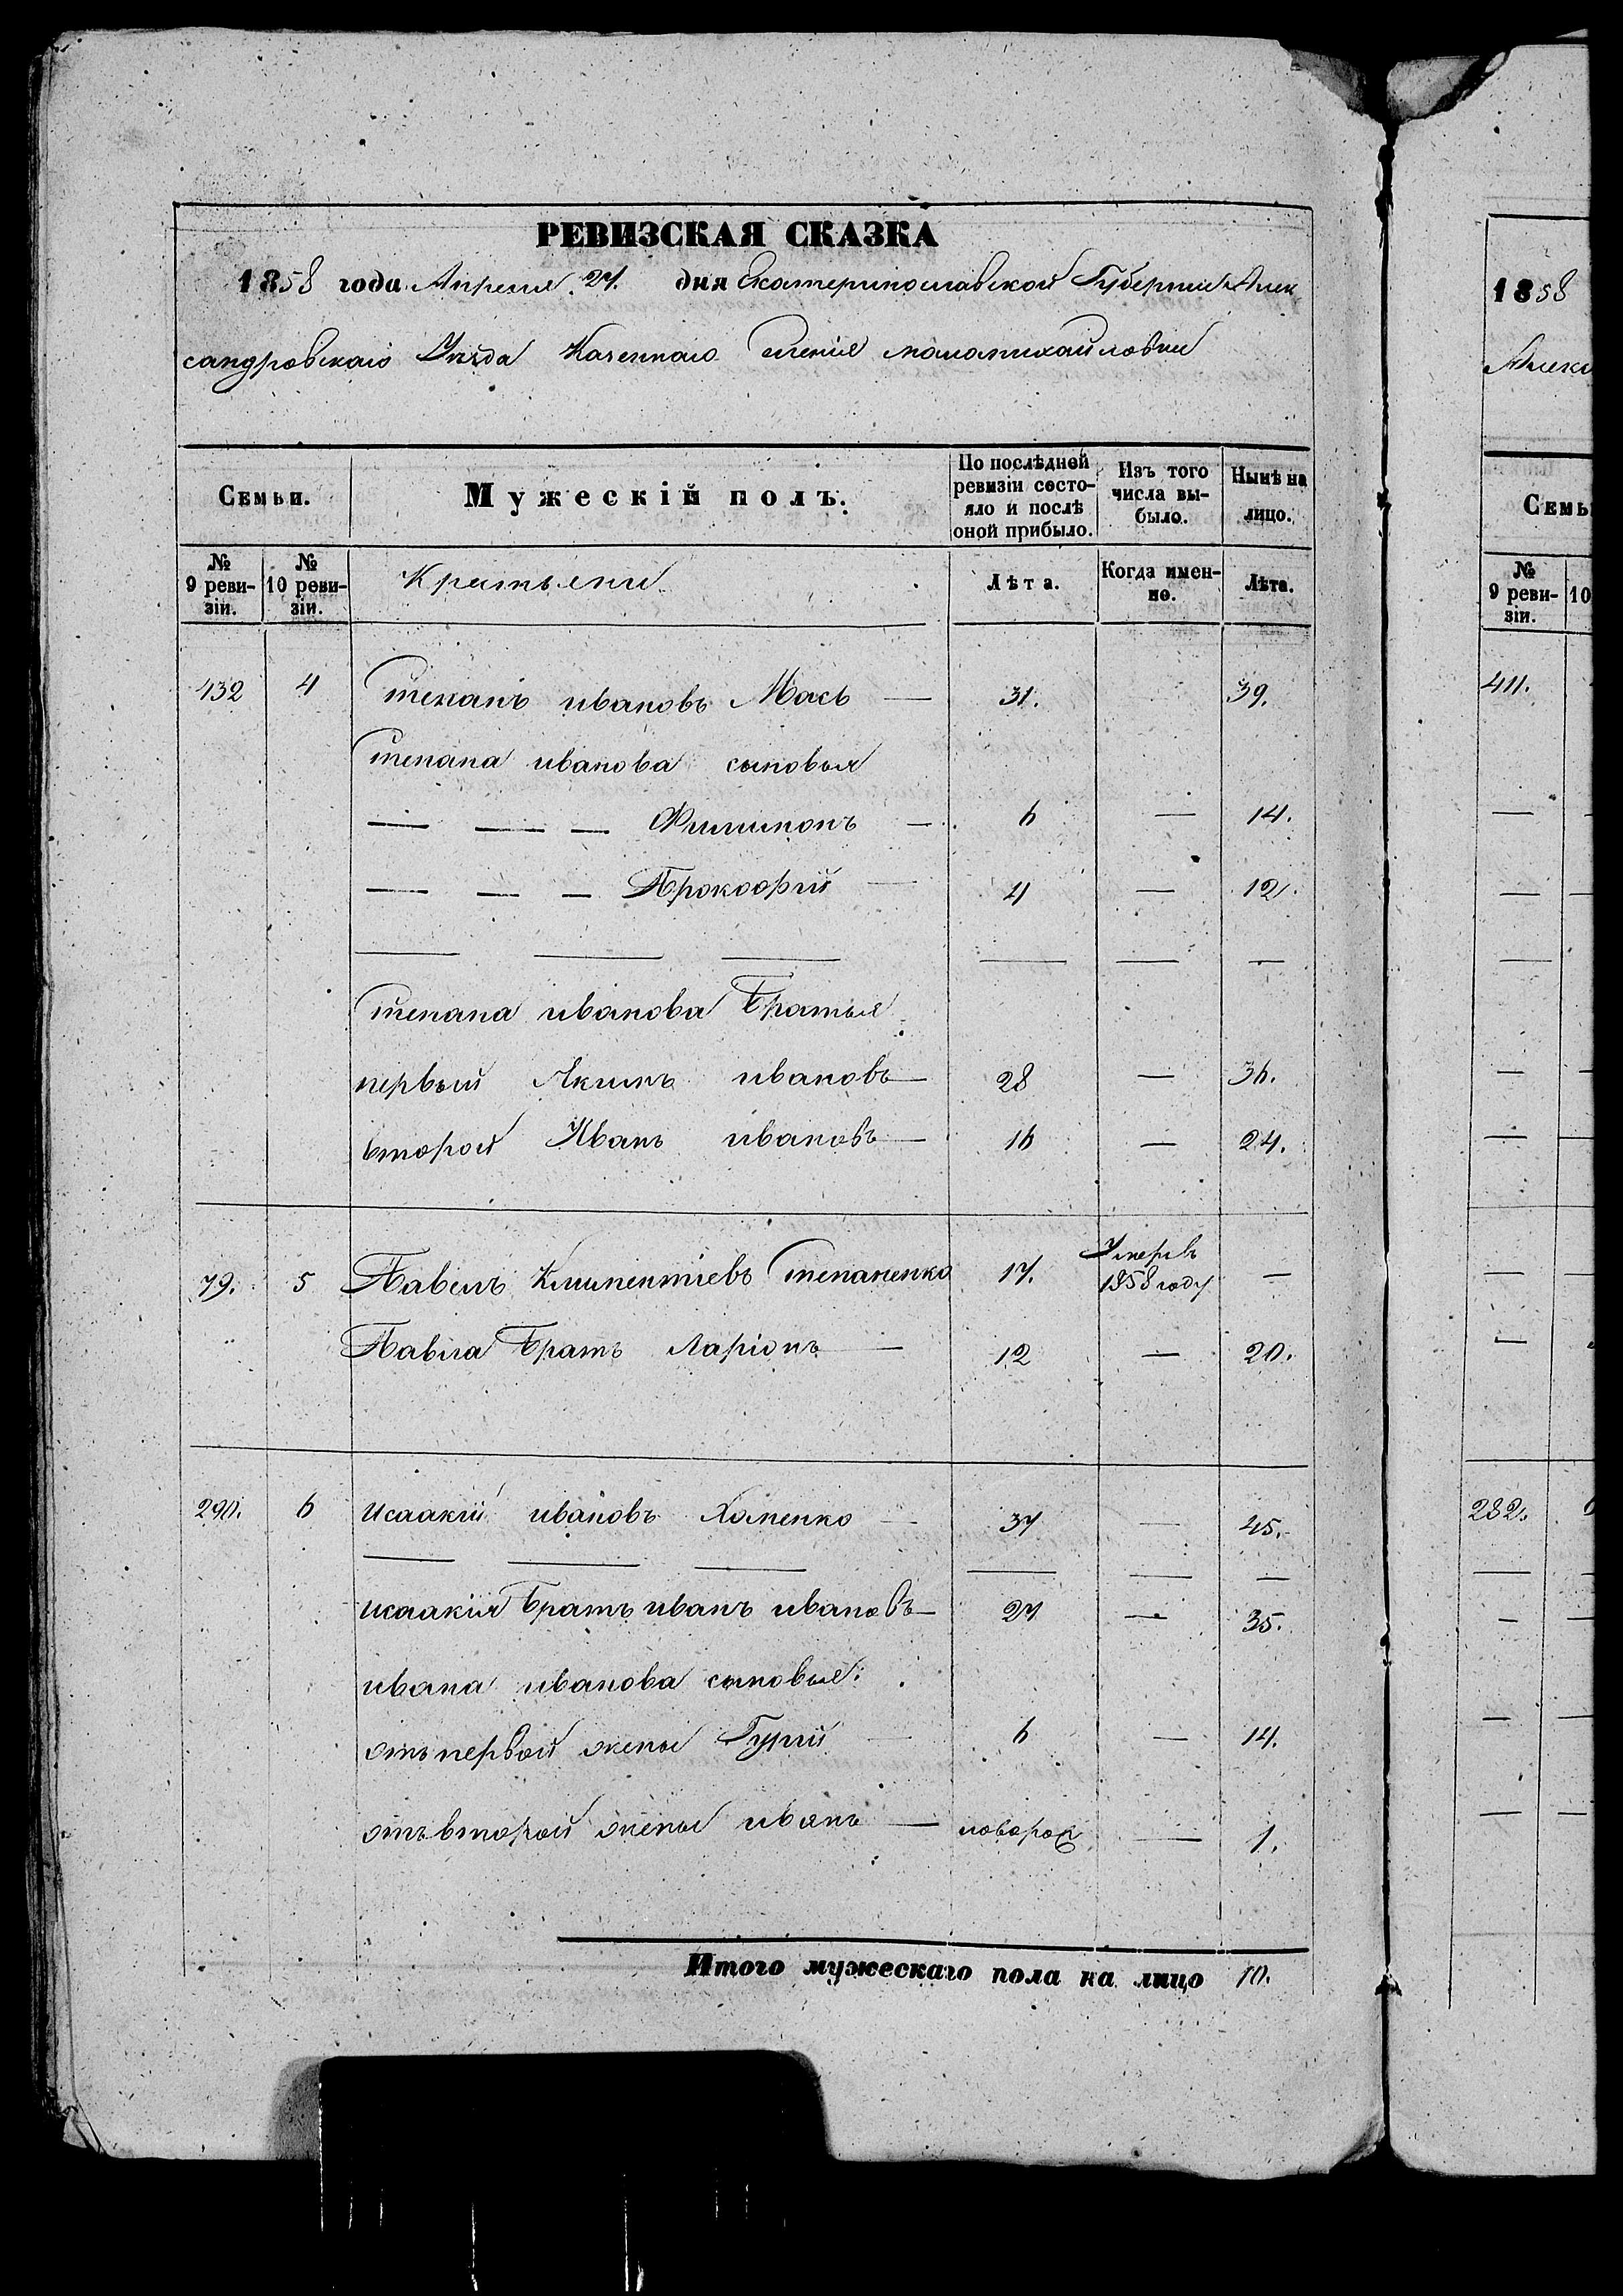 РЕВИЗСКАЯ СКАЗКА
1858 года Апреля 27. дня Екатеринославской Губернии Алек
сандровскаго Уезда Казеннаго селенія маломихайловки
Семьи.
Мужескій полъ.
По послѣдней ревизіи состояло и послѣ оной прибыло.
Изъ того числа выбыло.
Нынѣ на лицо.
№ 9 ревизіи.
№ 10 ревизіи.
Крестьяни
Лѣта.
Когда именно.
Лѣта.
432 4 Степанъ ивановъ — 31. 39.
Степана иванова сыновья
— — — Филимонъ — 6 — 14.
— — — Прокофій — 4 — 12.
— — — — — —
Степана иванова Братья
первый Якимъ ивановъ — 28 — 36.
второй Иванъ ивановъ — 16 — 24.
79. 5 Павелъ Климентіевъ Степаненко 17. Умеръ в 1858 году —
Павла Братъ Ларіонъ — 12 — 20.
290. 6 исаакій ивановъ Хоменко — 37 — 45.
— — — — — —
исаакия Братъ иванъ ивановъ — 27 — 35.
ивана иванова сыновья:
отъ первой жены Гурій — 6 — 14.
отъ второй жены иванъ — новорож — 1.
Итого мужескаго пола на лицо 10.
1858
Алекс
Семь
№ 9 ревизіи.
10
411.
282. 6